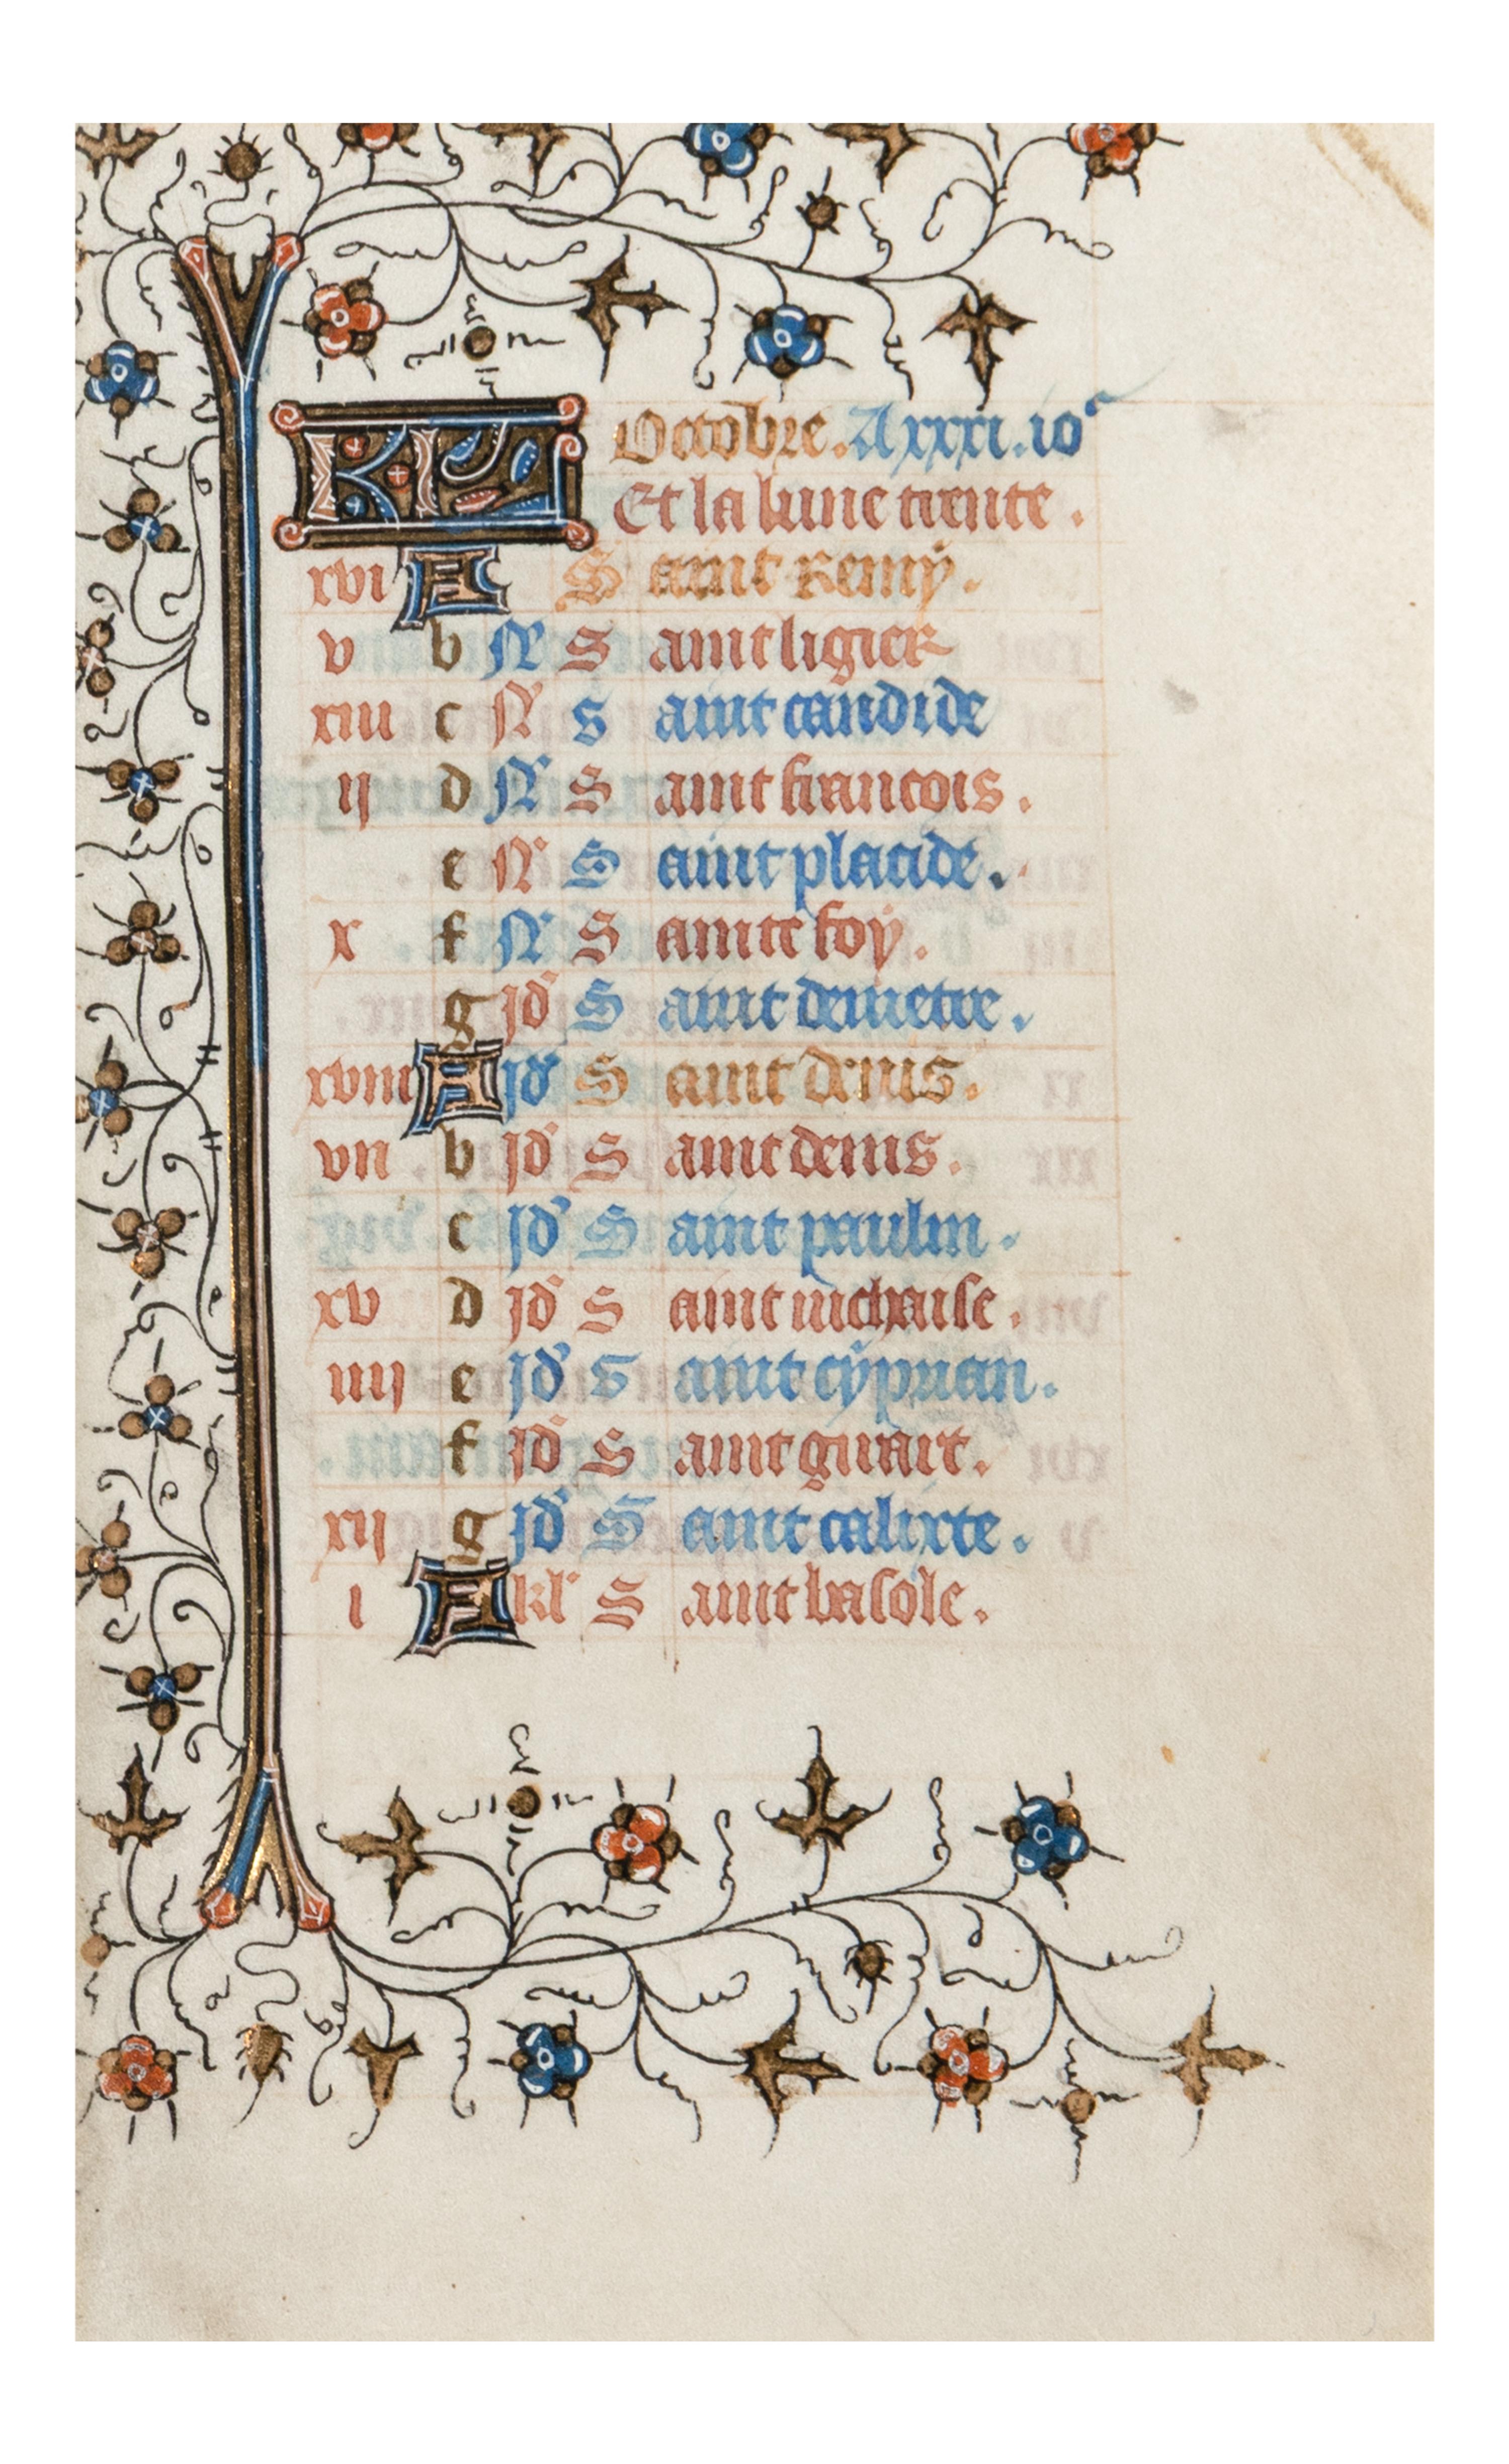 KL Octobre. A xxxi. io^rs
Et la lune trente.
xvi A Saint Remy.
v b N^s Saint ligier
xiii c N^s saint candide
ij d N^s Saint francois.
e N^s Saint placide.
x f N^s Sainte foy.
g jd^s Saint demetre.
xviii A jd^s Saint denis.
vii b jd^s Saint denis.
c jd^s Saint paulin.
xv d jd^s Saint nichaise.
iiij e jd^s Saint cyprian.
f jd^s Saint guirart.
xij g jd^s Saint calixte.
i A kl^s Saint basole.